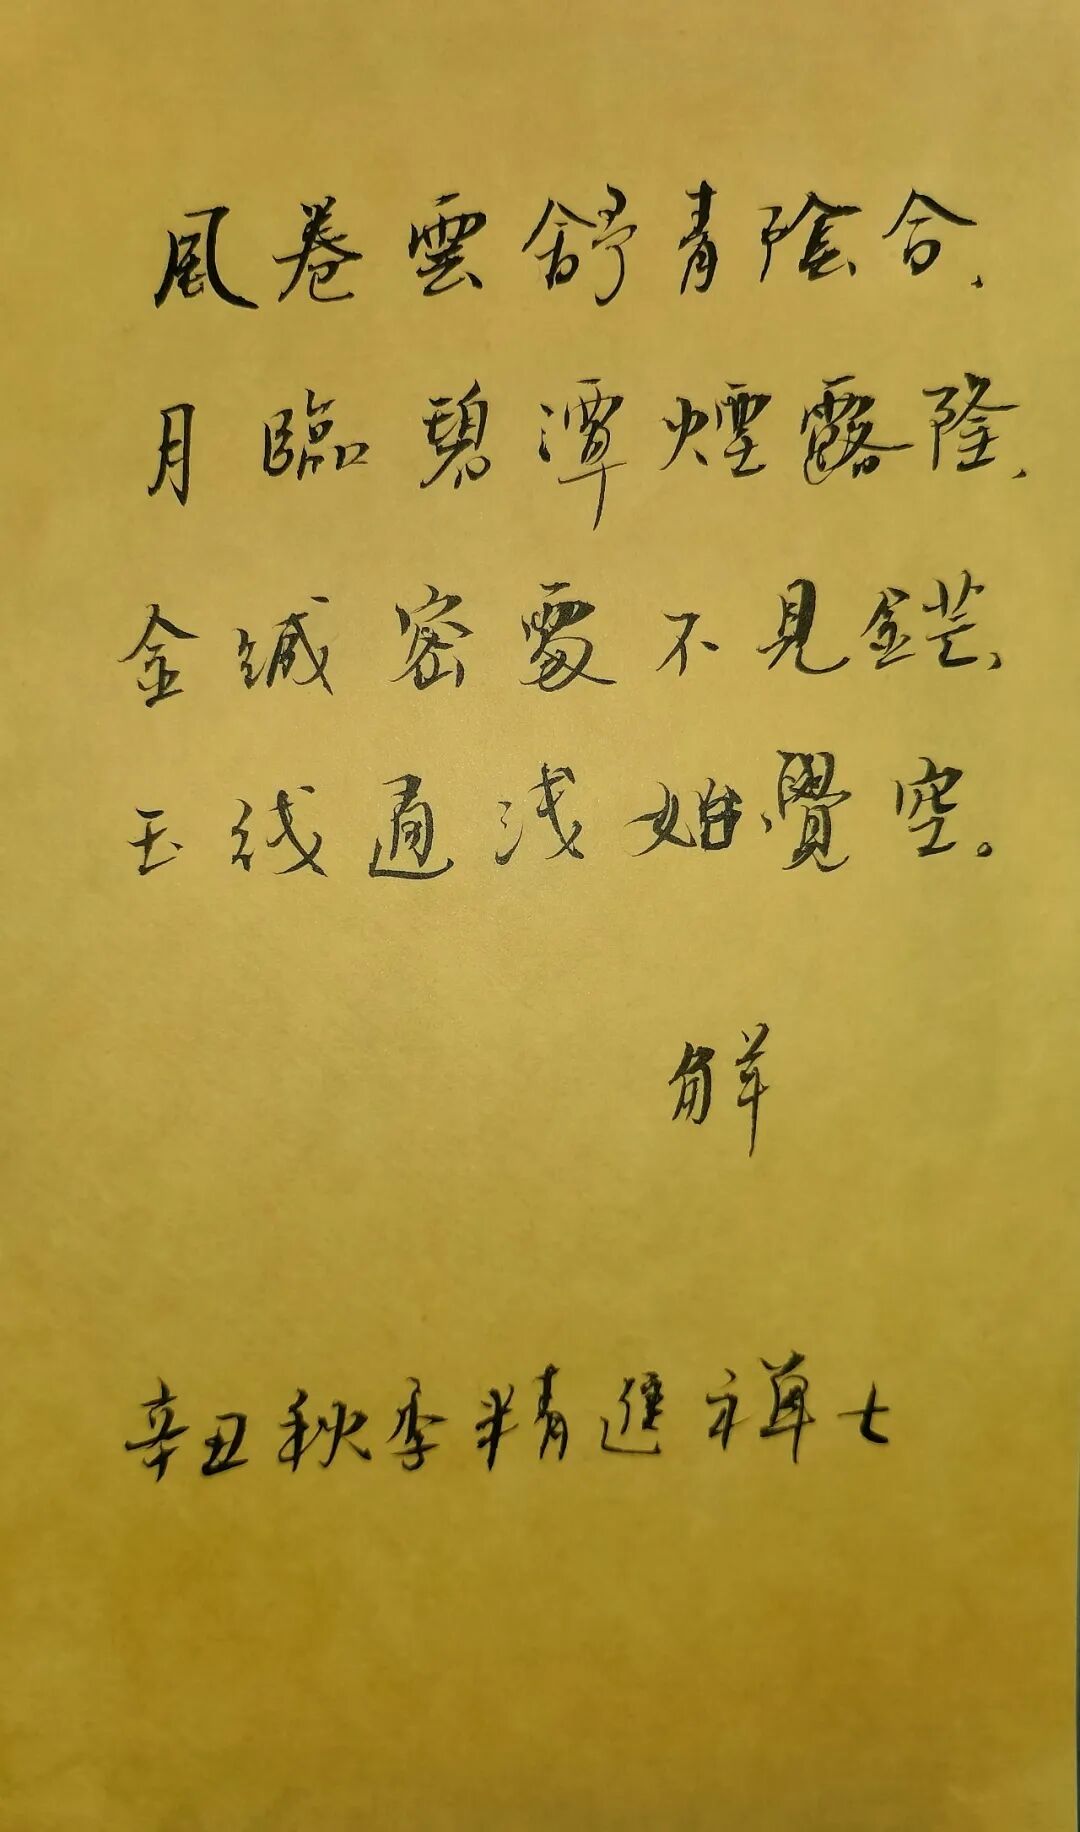 風卷雲舒青陰合,
月臨碧潭煙露隆,
金緘密處不見鋩、
玉线通浅始覺空。
解
辛丑秋季精進禪七